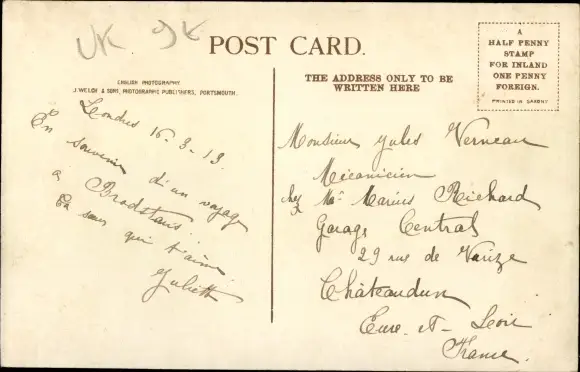 UK 9K
POST CARD.
ENGLISH PHOTOGRAPHY
J. WELCH & SONS, PHOTOGRAPHIC PUBLISHERS, PORTSMOUTH.
Londres 16-3-13.
En souvenir d'un voyage
à
Ta sœur qui t'aime
Juliette
THE ADDRESS ONLY TO BE
WRITTEN HERE
A
HALF PENNY
STAMP
FOR INLAND
ONE PENNY
FOREIGN.
PRINTED IN SAXONY
Monsieur Jules Verneau
Mécanicien
chez Mr Marius Richard
Garage Central
29 rue de Varize
Châteaudun
Eure-et-Loir
France.